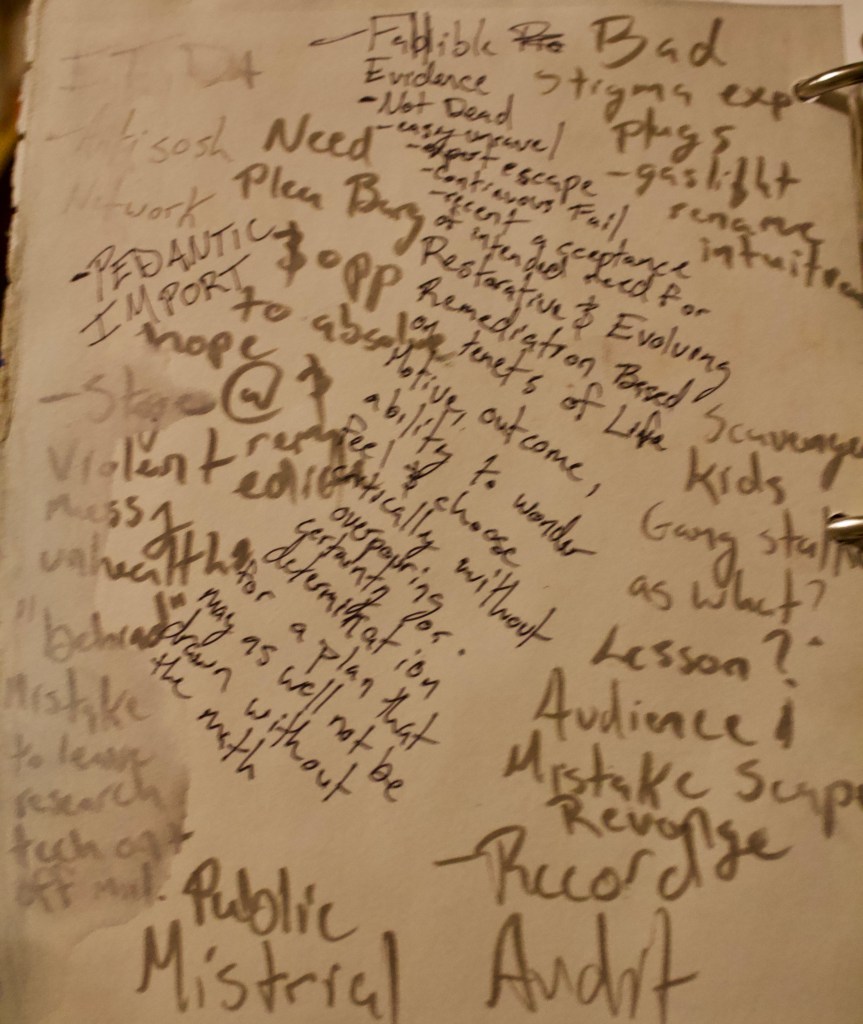 - Fallible
Evidence
- Not Dead
- easy unravel
- escape
- Continuous Fail
- recent acceptance
of intended need for
Restorative & Evolving
Remediation Based
on tenets of Life
Motive, outcome,
ability to wonder
feel & choose
critically without
overpouring
certainty for
determination
for a plan that
may as well not be
drawn without
the math
Bad
Stigma exp
plugs
- gaslight
rename
intuition
Need
Plea Barg
$ opp
to absolve
nope
Network
- PEDANTIC
IMPORT
- Stage @ $
Violent
messy
unhealthy
"behead"
Mistake
to leave
research
tech opt
off
Scavenge
Kids
Gang stalk
as what?
Lesson?
Audience
Mistake Scape
Revenge
- Record
Public
Mistrial Audit